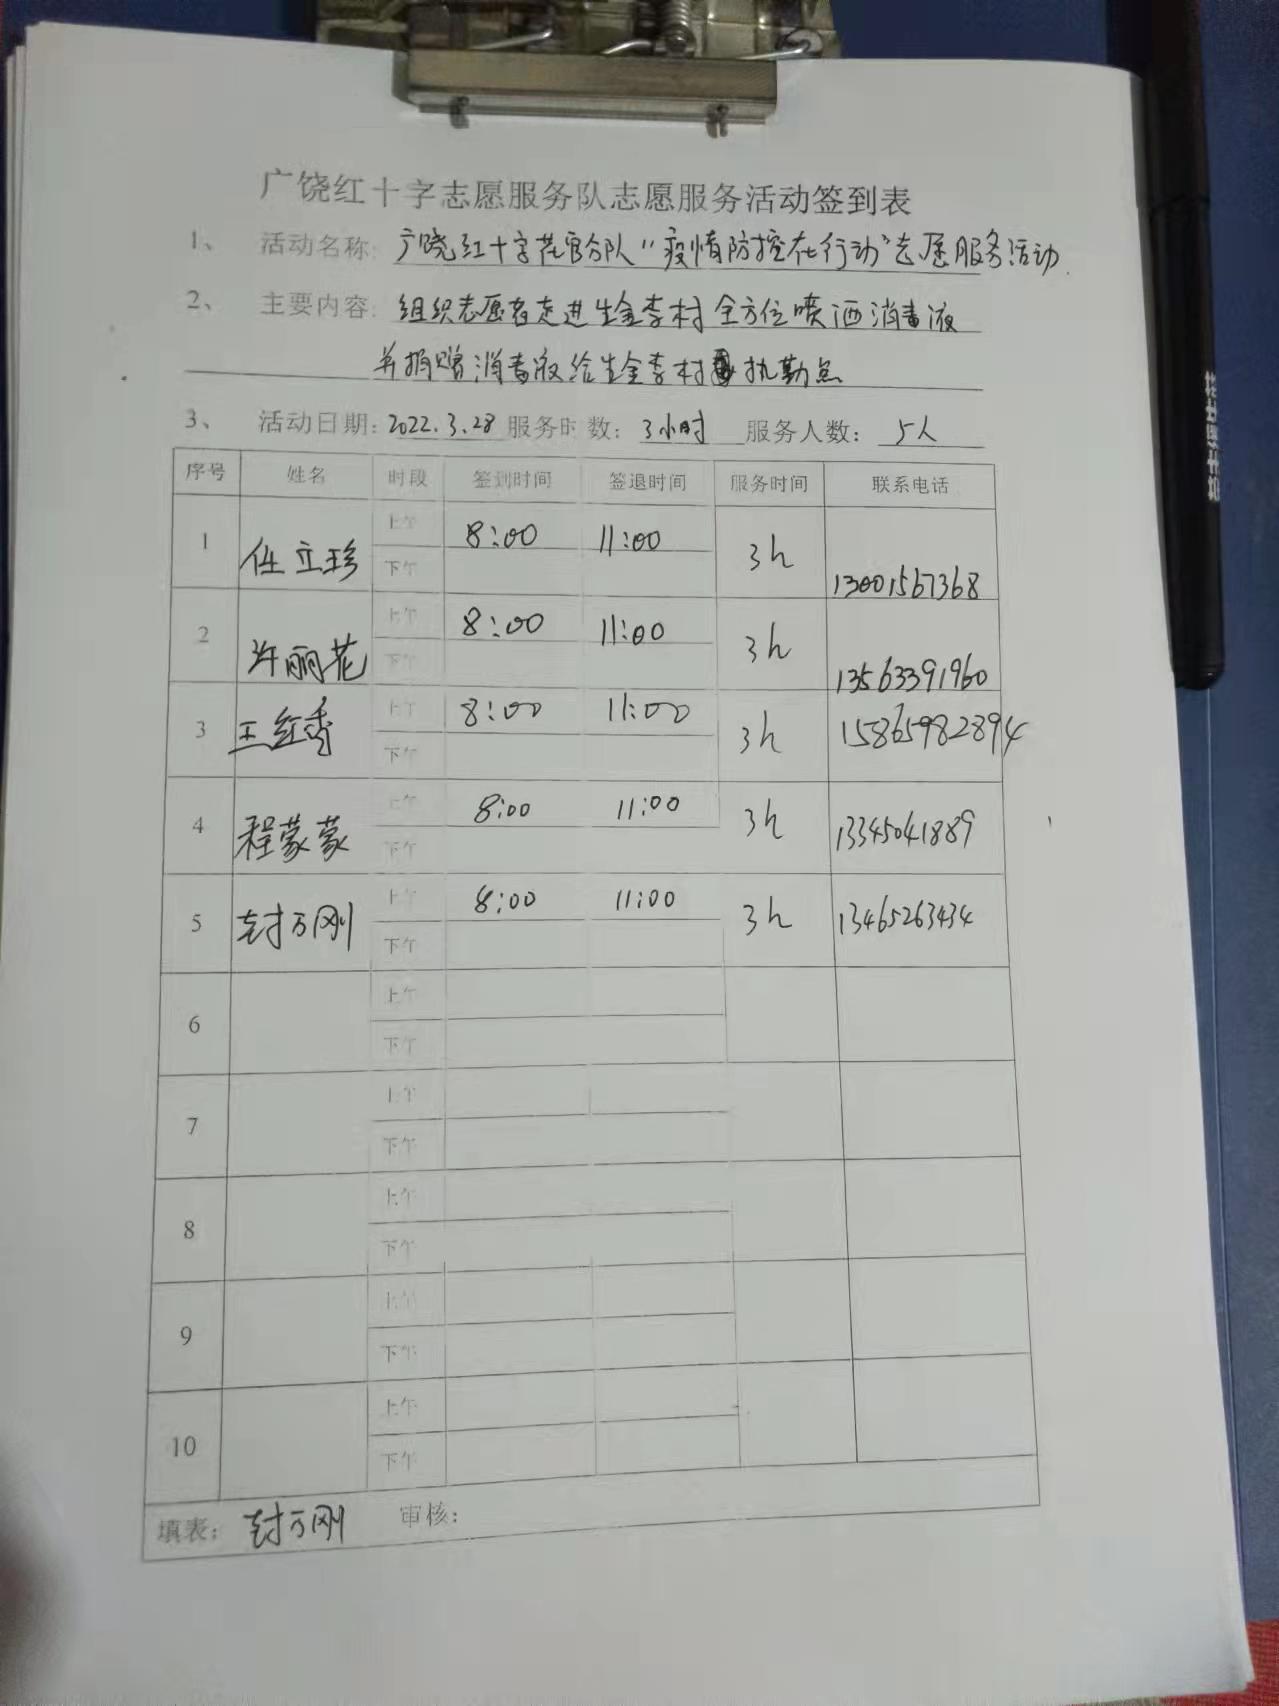 广饶红十字志愿服务队志愿服务活动签到表
1、 活动名称: 广饶红十字花官分队"疫情防控在行动"志愿服务活动.
2、 主要内容: 组织志愿者走进生金李村全方位喷洒消毒液
并捐赠消毒液给生金李村执勤点
3、 活动日期: 2022.3.28 服务时数: 3小时 服务人数: 5人
序号 姓名 时段 签到时间 签退时间 服务时间 联系电话
1 任立珍 上午 8:00 11:00 3h 13001567368
下午
2 许丽花 上午 8:00 11:00 3h 13563391960
下午
3 王红香 上午 8:00 11:00 3h 15865982894
下午
4 程蒙蒙 上午 8:00 11:00 3h 13345041889
下午
5 封万刚 上午 8:00 11:00 3h 13465263434
下午
6 上午
下午
7 上午
下午
8 上午
下午
9 上午
下午
10 上午
下午
填表: 封万刚 审核: